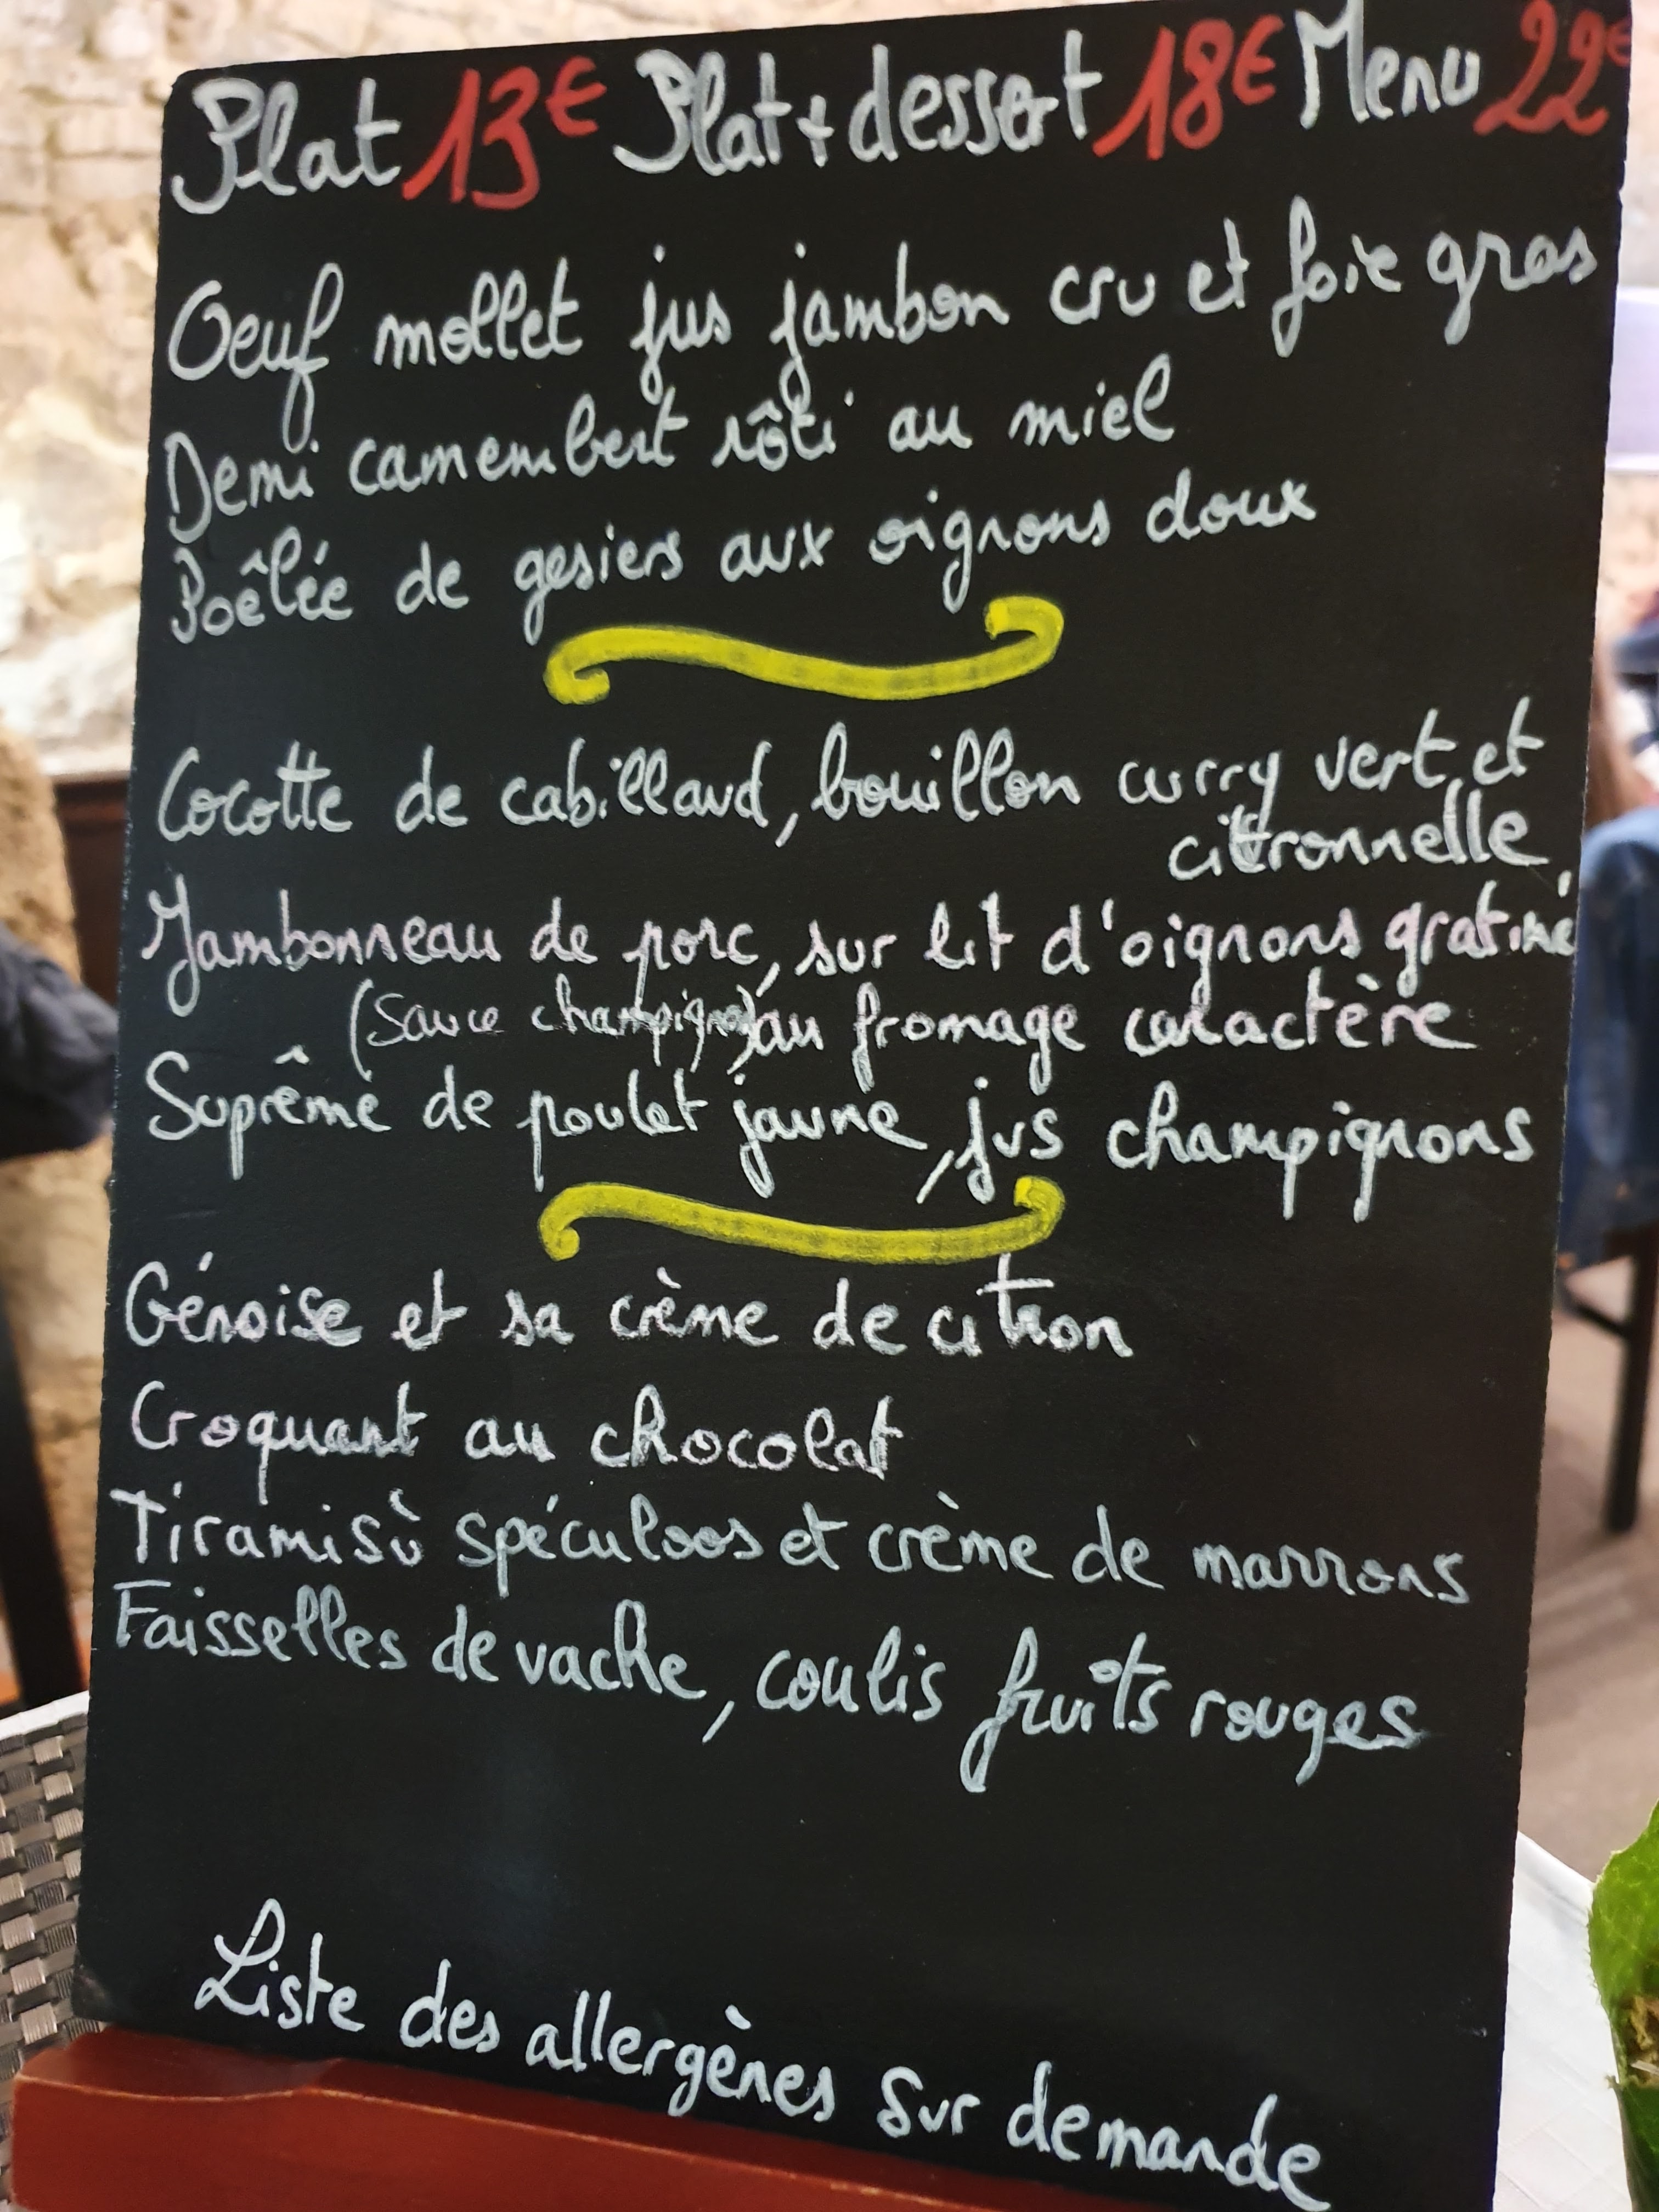 Plat 13€ Plat + dessert 18€ Menu 22€
Oeuf mollet jus jambon cru et foie gras
Demi camembert rôti au miel
Poêlée de gesiers aux oignons doux
Cocotte de cabillaud, bouillon curry vert et
citronnelle
Jambonneau de porc, sur lit d'oignons gratiné
(Sauce champignon) au fromage caractère
Suprême de poulet jaune, jus champignons
Génoise et sa crème de citron
Croquant au chocolat
Tiramisù spéculoos et crème de marrons
Faisselles de vache, coulis fruits rouges
Liste des allergènes sur demande